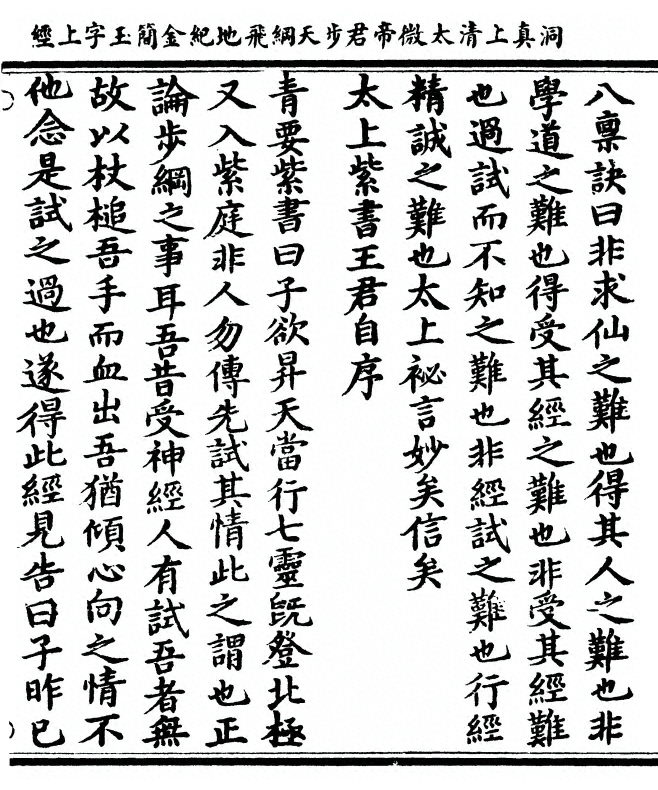 洞真上清太微帝君步天綱飛地紀金簡玉字上經
八稟訣曰非求仙之難也得其人之難也非
學道之難也得受其經之難也非受其經難
也過試而不知之難也非經試之難也行經
精誠之難也太上祕言妙矣信矣
太上紫書王君自序
青要紫書曰子欲昇天當行七靈旣登北極
又入紫庭非人勿傳先試其情此之謂也正
論步綱之事耳吾昔受神經人有試吾者無
故以杖槌吾手而血出吾猶傾心向之情不
他念是試之過也遂得此經見告曰子昨已